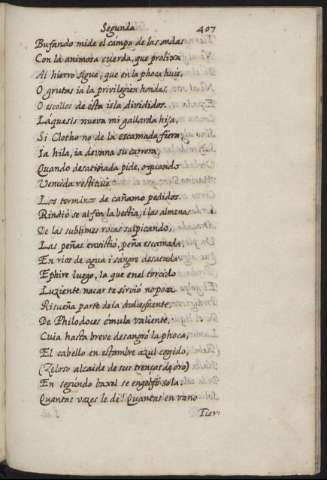 Segunda 407
Bufando mide el campo de las ondas
Con la animosa cuerda, que prolixa
Al hierro sigue, que en la phoca huie,
O grutas ia la privilegien hondas,
O escollos de esta isla divididos.
Láquesis nueva mi gallarda hija,
Si Clotho no de la escamada fiera
Ia hila, ia devana su carrera,
Quando desatinada pide, o quando
Vencida restituie
Los terminos de cañamo pedidos.
Rindiose al fin la bestia, i las almenas
De las sublimes rocas salpicando,
Las peñas envistio, peña escamada,
En rios de agua i sangre desatada.
Ephire luego, la que en el torcido
Luziente nacar te sirvió no poca
Risueña parte de la dulce fuente,
De Philodoces emula valiente,
Cuia hasta breve desangró la phoca,
El cabello en estambre azul cogido,
(Zeloso alcaide de sus trenças de oro)
En segundo baxel se engolfó sola.
Quantas vozes le di! Quantas en vano
Tier-